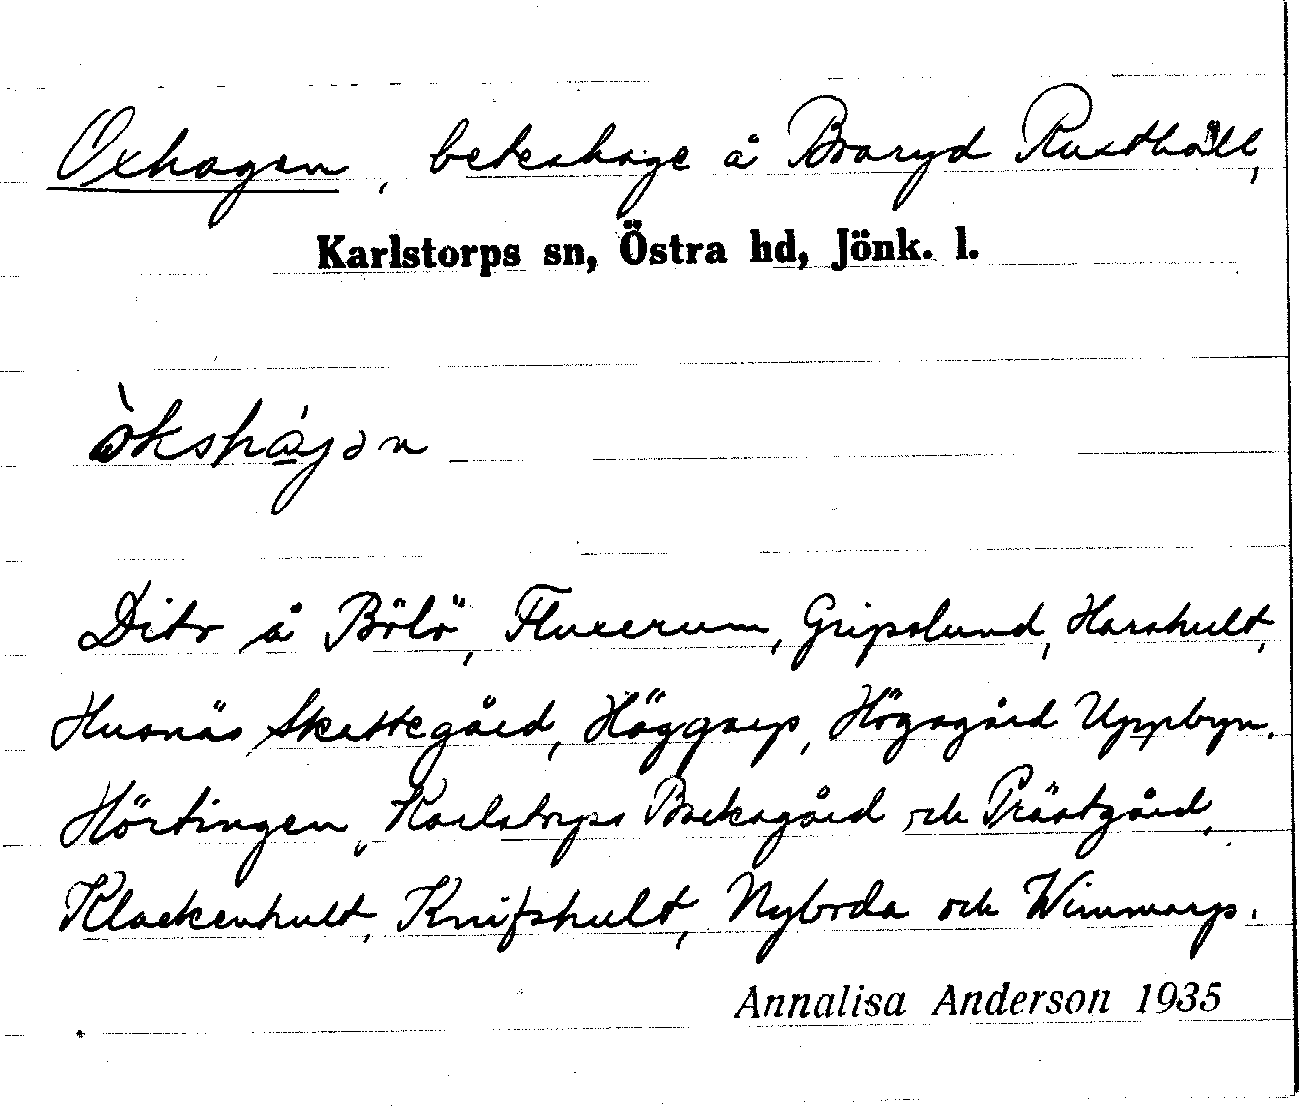 Oxhagen, beteshage å Braryd Rusthåll,
Karlstorps sn, Östra hd, Jönk. l.
òkshágən
Dito å Bölö, Fluxerum, Gripslund, Harshult,
Husnäs Skattegård, Höggarp, Högagård Uppbyn,
Hörtingen, Karlstorps Backagård och Prästgård,
Klackenhult, Knifshult, Nyboda och Wimmarp.
Annalisa Anderson 1935